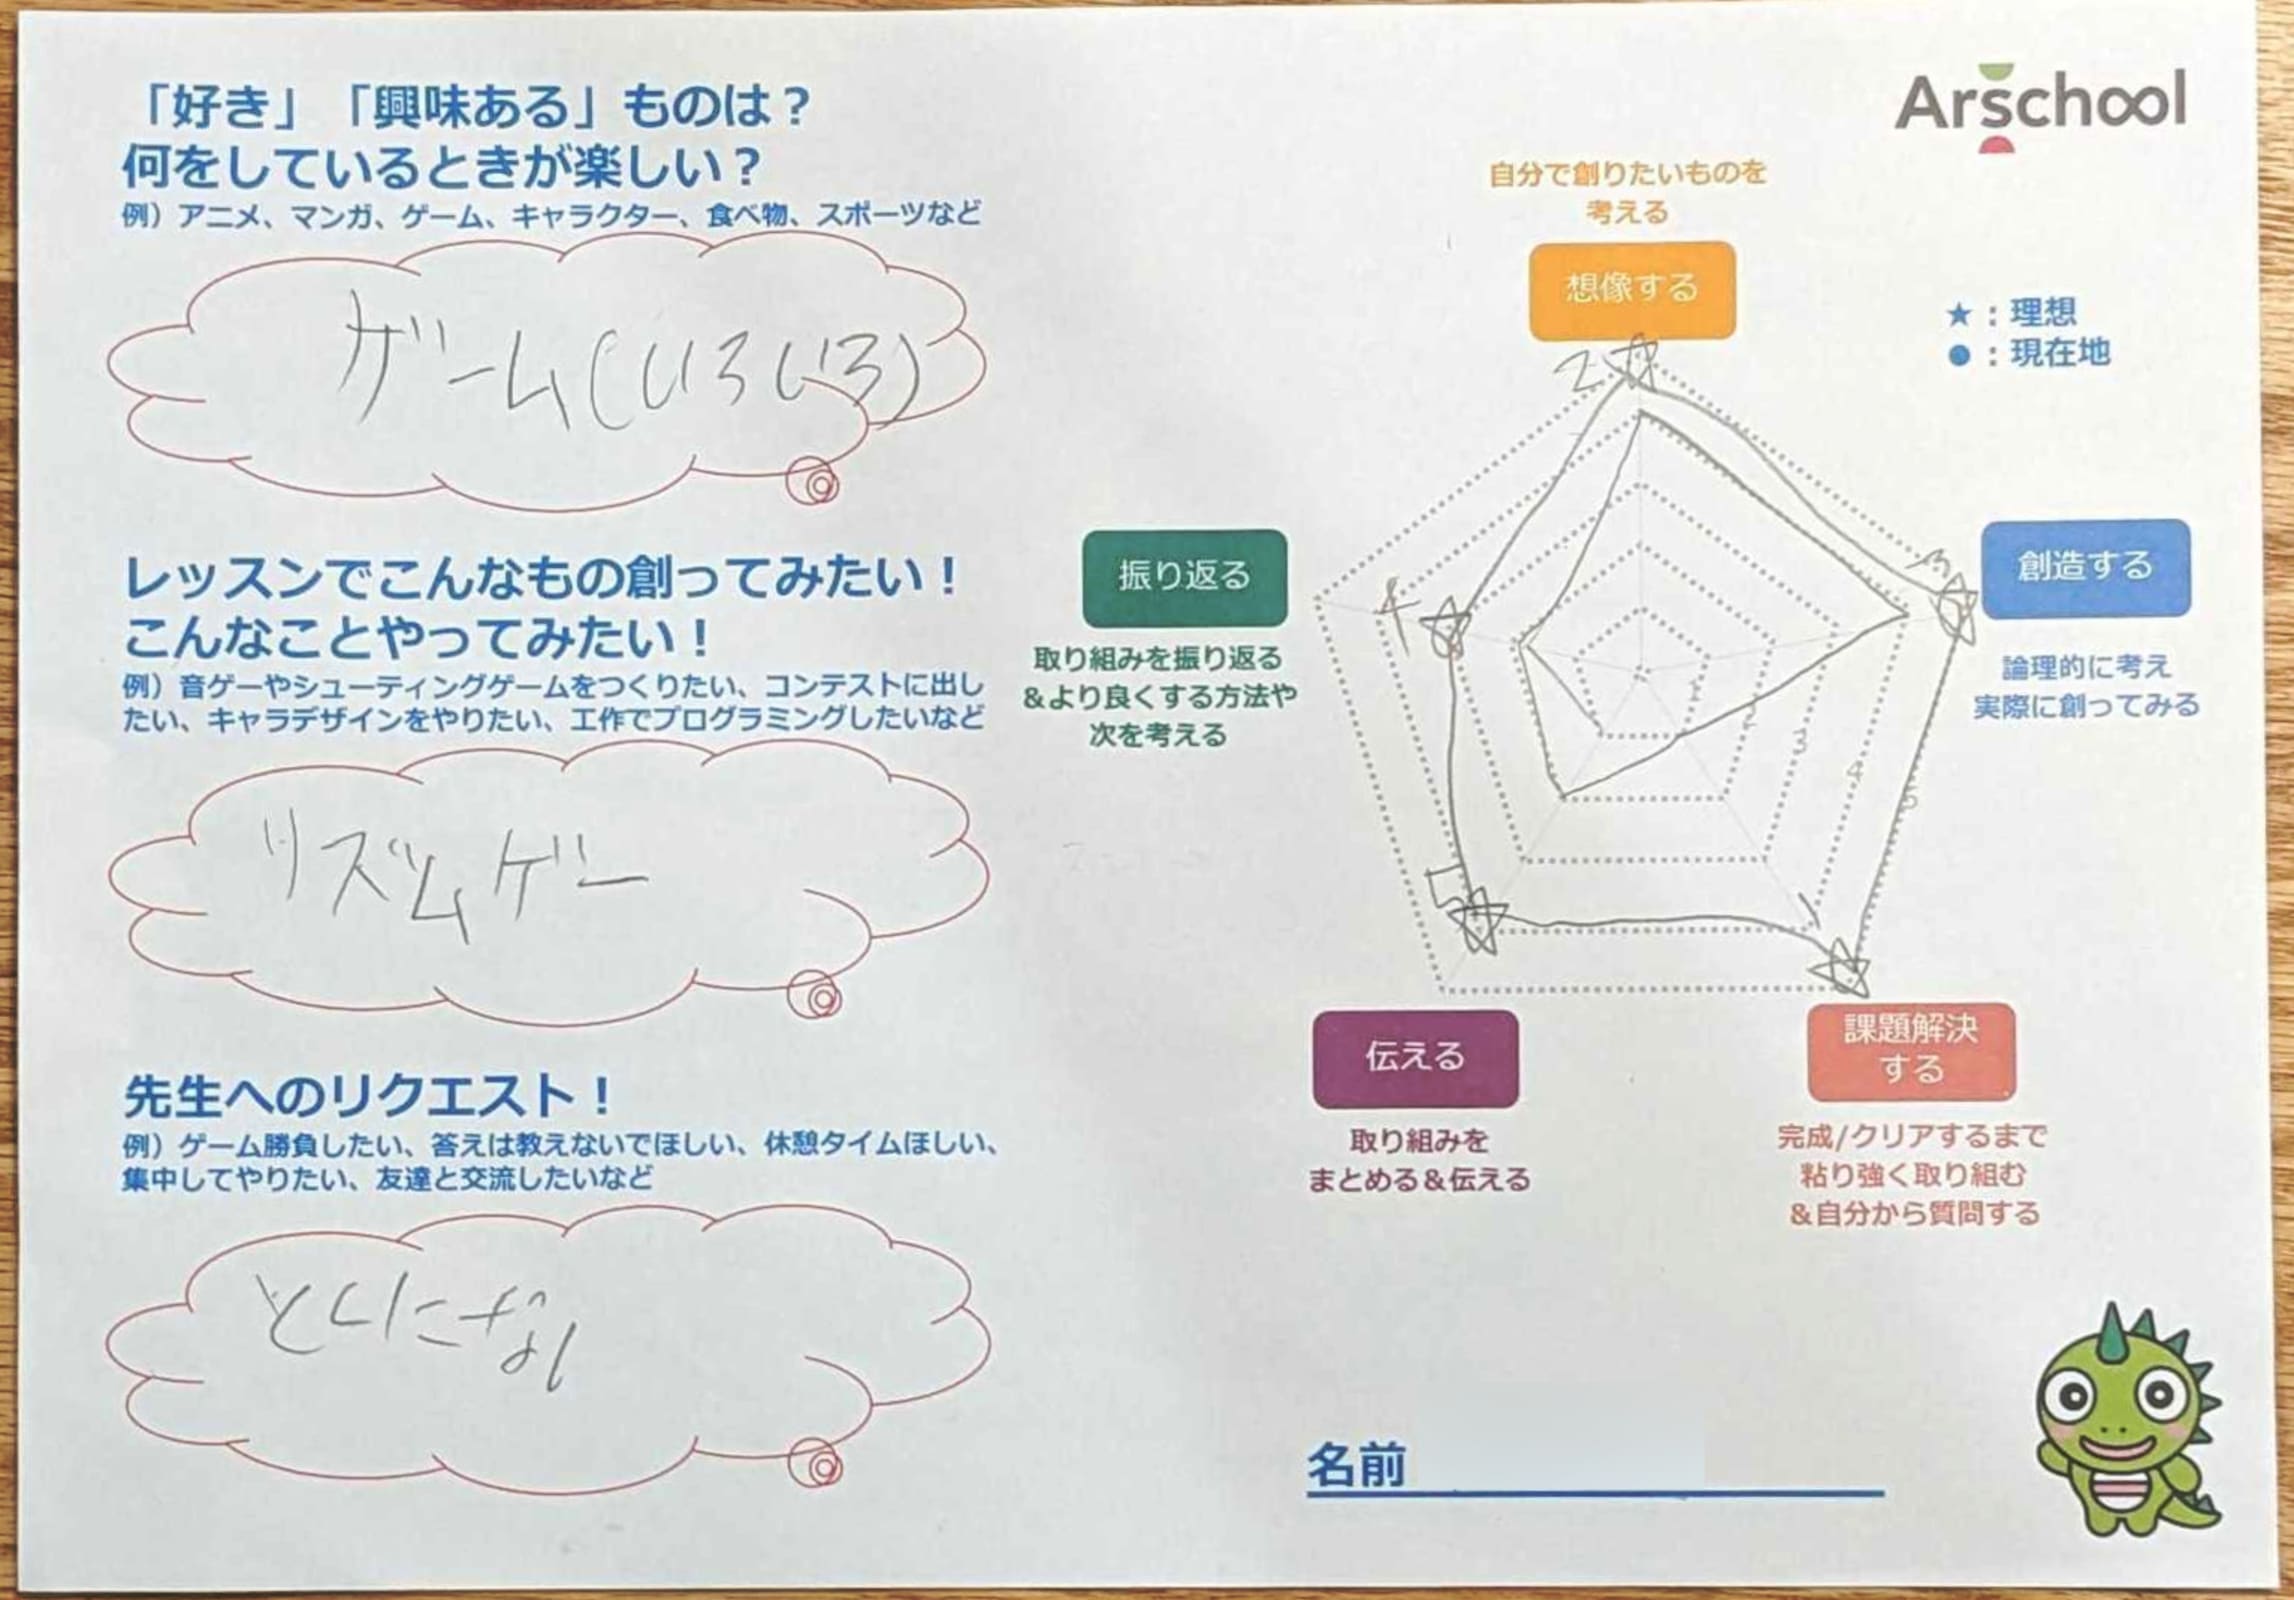 「好き」「興味ある」ものは？
何をしているときが楽しい？
例）アニメ、マンガ、ゲーム、キャラクター、食べ物、スポーツなど
ゲーム(いろいろ)
レッスンでこんなもの創ってみたい！
こんなことやってみたい！
例）音ゲーやシューティングゲームをつくりたい、コンテストに出し
たい、キャラデザインをやりたい、工作でプログラミングしたいなど
リズムゲー
先生へのリクエスト！
例）ゲーム勝負したい、答えは教えないでほしい、休憩タイムほしい、
集中してやりたい、友達と交流したいなど
とくになし
Arschool
自分で創りたいものを
考える
想像する
★：理想
●：現在地
2
創造する
3
論理的に考え
実際に創ってみる
振り返る
4
取り組みを振り返る
＆より良くする方法や
次を考える
1
2
3
4
5
5
1
伝える
取り組みを
まとめる＆伝える
課題解決
する
完成/クリアするまで
粘り強く取り組む
＆自分から質問する
名前